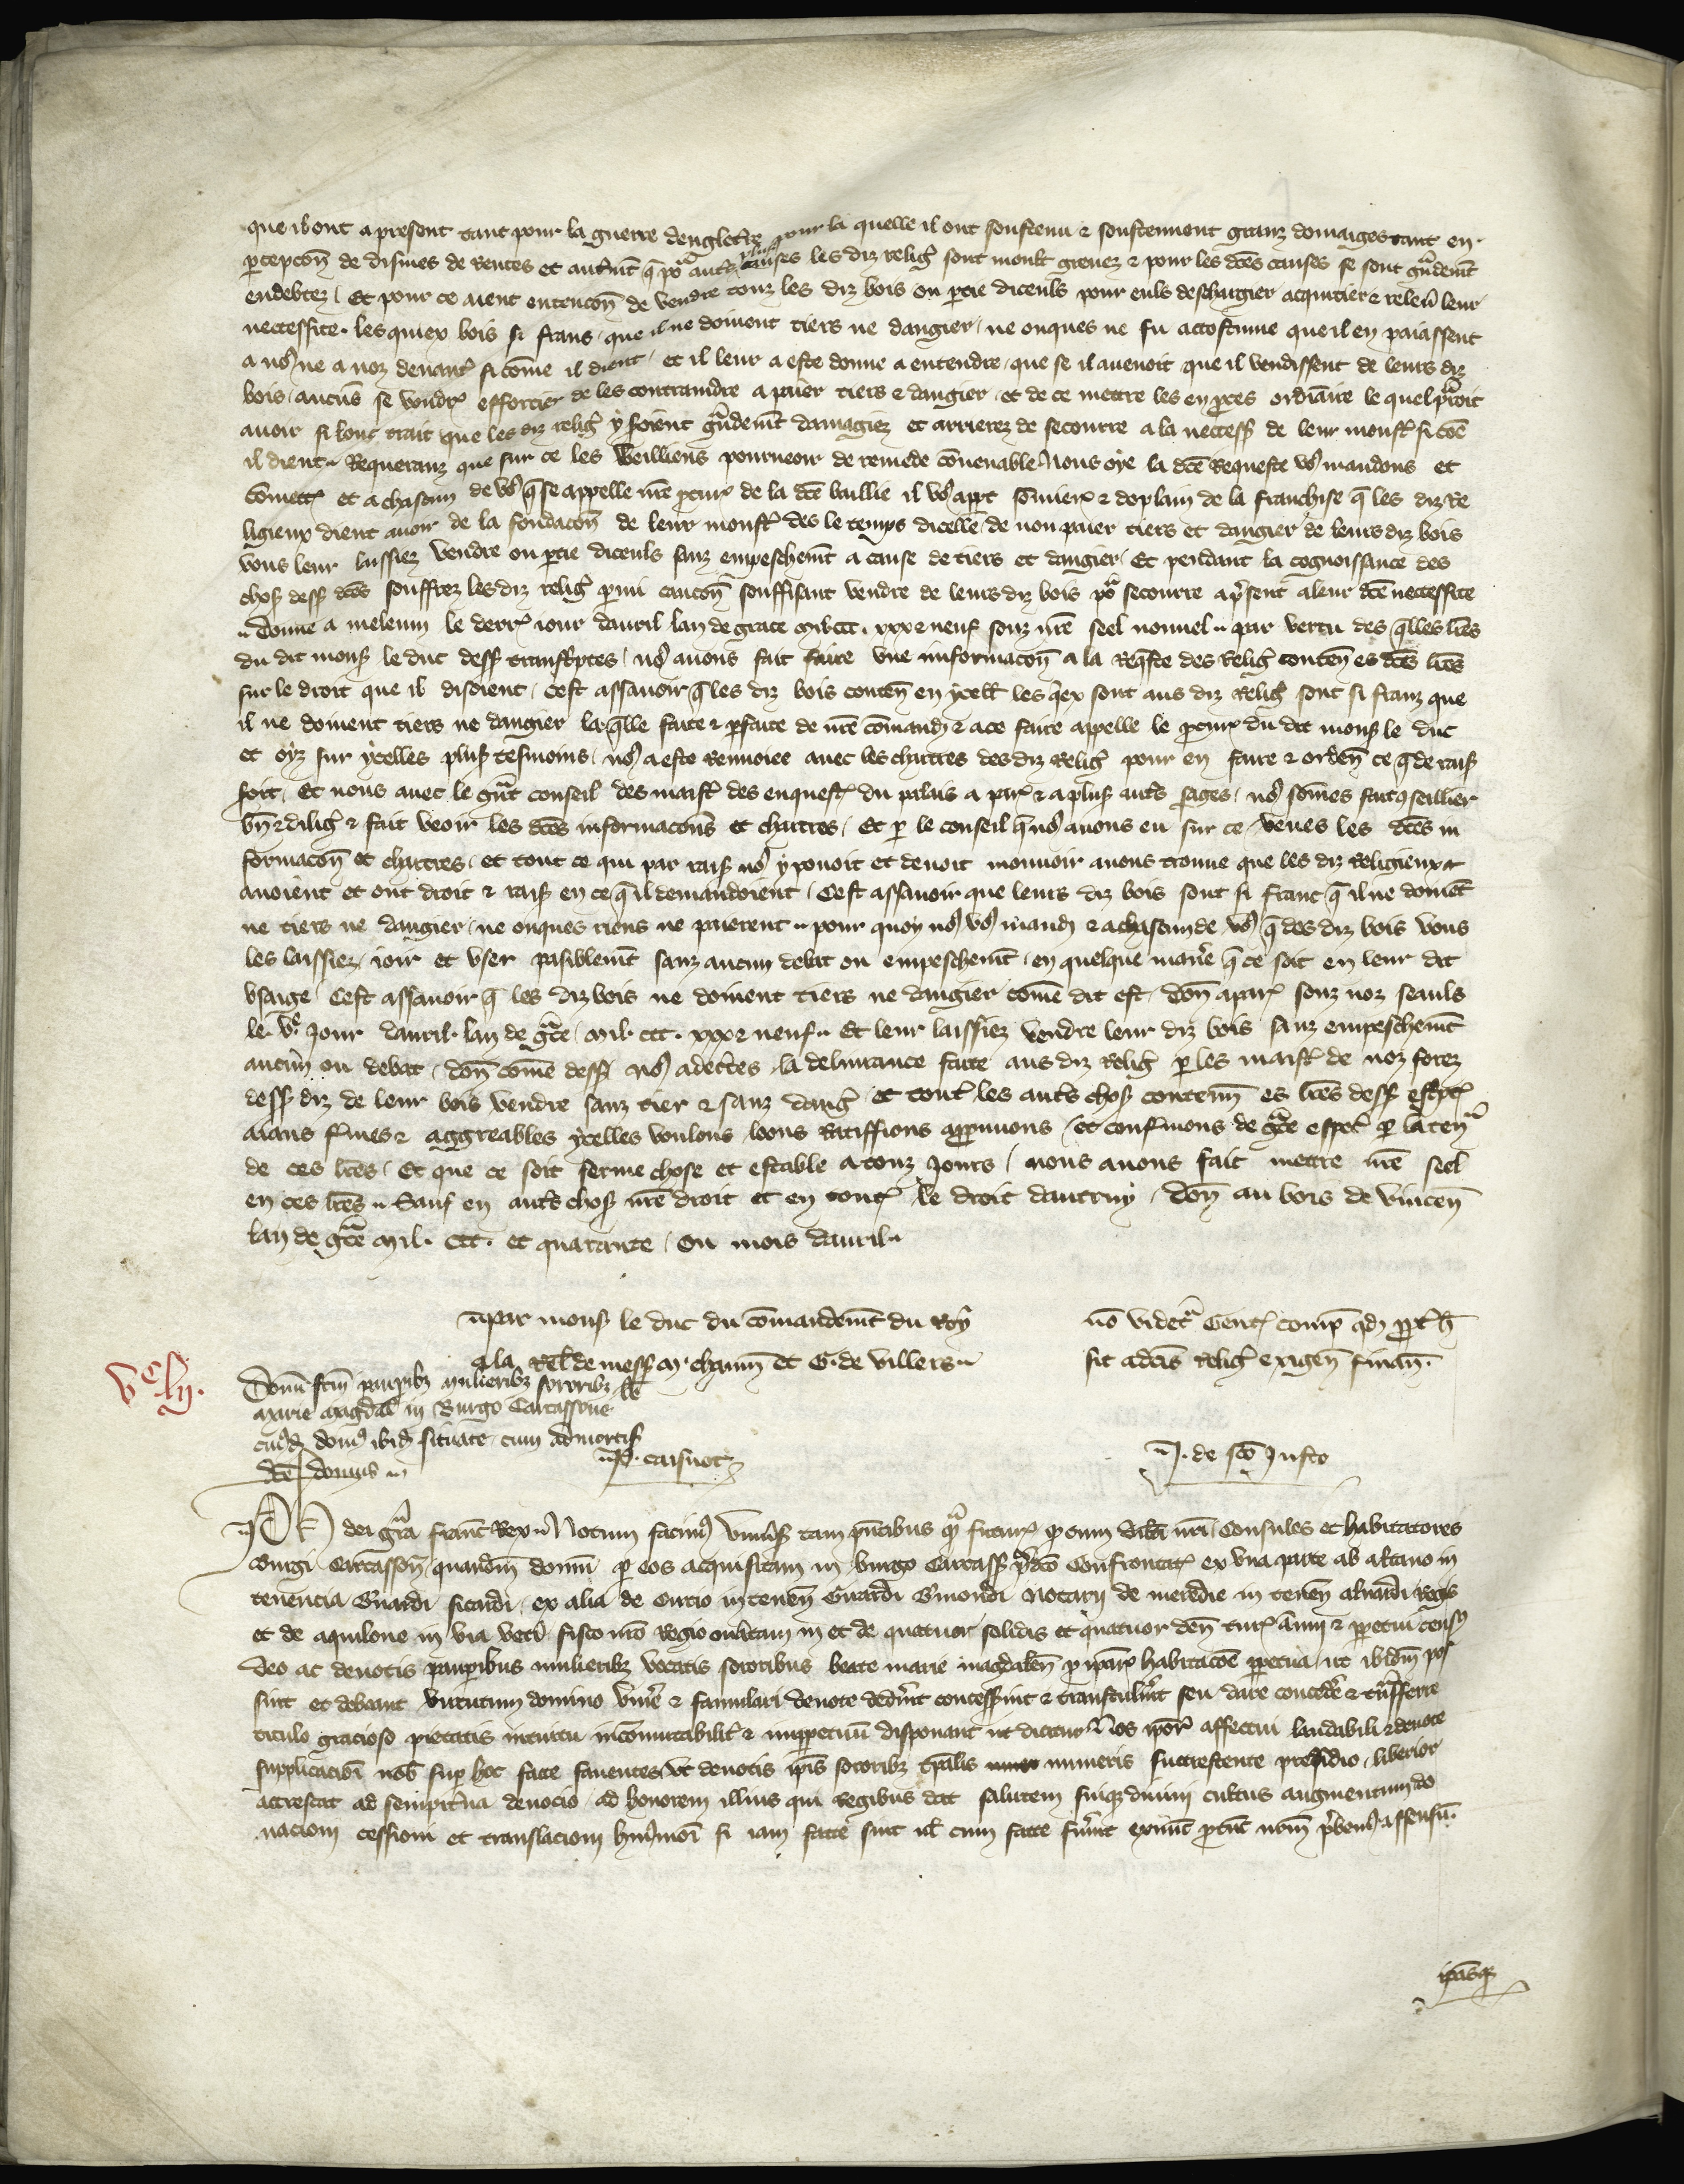 que il ont a present tant pour la guerre dengleterre pour la quelle il ont soustenu & soustennent granz domaiges tant en
ꝑcepcon̄ de disines de rentes et autremt̄ q̄ poᷓ autˢ plusˢ causes les diz religˢ sont moult greuez & pour les dc̄es causes se sont gᷓndemt̄
endebtez / Et pour ce aient entencon̄ de vendre touz les diz bois ou ꝑtie diceuls pour euls deschargier acquitier & releuˢ leur
neccessite. les quiex bois si frans / que il ne doiuent tiers ne dangier / ne onques ne fu accostume que il en paiassent
a noˢ ne a noz deuantˢ si com̄e il dient / et il leur a este donne a entendre / que se il auenoit que il vendissent de leurs diz
bois / aucūs se voudrˢ efforcier de les contraindre a paier tiers & dangier / et de ce mettre les en ꝓces ordināire le quel pᷓroit
auoir si lonc trait que les diz religˢ y soient gᷓndemt̄ damagiez et arrierez de secourre a la neccessˢ de leur moustˢ si com̄e
il dient. Requeranz que sur ce les veilliens pourueoir de remede conuenable. Nous oye la dc̄e requeste voˢ mandons et
com̄ettˢ et a chascun de voˢ q̄ se appelle nr̄e ꝓcurˢ de la dc̄e baillie il voˢ appt som̄ierˢ & de plain de la franchise q̄ les diz Re
ligieux dient auoir de la fondacon̄ de leur moustˢ des le temps dicelle de non paier tiers et dangier de leurs diz bois
vous leur laissiez vendre ou ꝑtie diceuls sanz empeschemt̄ a cause de tiers et dangier / Et pendant la cognoissance des
chosˢ dessˢ dc̄es souffrez les diz religˢ ꝑmi caucon̄ souffisant vendre de leurs diz bois poᷓ secourre a p̄sent a leur dc̄e neccessite
Donne a meleun le derrˢ iour dauril lan de grace mil ccc. xxx & neuf souz nr̄e seel nouuel. par vertu des q̄lles lr̄es
du dit monsˢ le duc dessˢ transcriptes / noˢ auons fait faire vne informacon̄ a la req̄ste des religˢ conten̄ es dc̄es lr̄es
sur le droit que il disoient / Cest assauoir q̄ les diz bois conten̄ en ycell les q̄ex sont aus diz religˢ sont si franz que
il ne doiuent tiers ne dangier la q̄lle faite & ꝑfaite de nr̄e com̄andˢ & a ce faire appelle le ꝓcurˢ du dit monsˢ le duc
et oyz sur ycelles plusˢ tesmoins / noˢ a este renuoiee auec les chartres des diz religˢ pour en faire & orden̄ ce q̄ de raisˢ
soit. Et nous auec le gᷓnt conseil des maistˢ des enquestˢ du palais a parˢ & a plusˢ autˢ sages / noˢ som̄es fait ꝯseillier
bn̄ & diligˢ & fait veoir les dc̄es informacon̄s et chartres / Et ꝑ le conseil q̄ noˢ auons eu sur ce veues les dc̄es in
formacon̄ et chartres / et tout ce qui par raisˢ noˢ y pouoit et deuoit mouuoir auons trouue que les diz religieux
auoient et ont droit & raisˢ en ce q̄ il demandoient / Cest assauoir que leurs diz bois sont si franc q̄ il ne doiuēt
ne tiers ne dangier / ne onques riens ne paierent. pour quoy noˢ voˢ mandˢ & a chascun de voˢ q̄ des diz bois vous
les laissiez / ioir et vser paisiblemt̄ sanz aucun debat ou empeschemt̄ / en quelque manˢe q̄ ce soit en leur dit
vsaige / Cest assauoir q̄ les diz bois ne doiuent tiers ne dangier com̄e dit est / don̄ a parˢ souz noz seauls
le. vᵉ. Jour dauril. lan de gᷓce / mil. ccc. xxx & neuf. Et leur laissiez vendre leur diz bois sanz empeschemt̄
aucun ou debat / don̄ com̄e dessˢ noˢ adecertes / la deliurance faite aus diz religˢ ꝑ les maistˢ de noz forez
dessˢ diz de leur bois vendre sanz tier & sanz dangˢ et toutˢ les autˢ chosˢ contenū es lr̄es dessˢ escptˢ
aians fˢmes & aggreables ycelles voulons / loons ratiffions approuuons / et confˢmons de gᷓce espetˢ ꝑ la tenᷓ
de ces lr̄es / Et que ce soit ferme chose et estable a touz Jours / nous auons fait mettre nr̄e seel
en ces lr̄es. Sauf en autˢ chosˢ nr̄e droit et en toutˢ le droit dautruy / don̄ au bois de vincen̄
lan de gᷓce mil. ccc. et quarante / Ou mois dauril.
par monsˢ le duc du com̄andemt̄ du Roy
a la Rel de messˢ M. chaum̄ et G. de villers.
nō videtᷓ Gentˢ compˢ qd ppt h̄
sit a dc̄is religˢ exigen̄ finan̄.
vᶜ lij.
Donū fcm̄ paupibȝ mulieribȝ sororibȝ be
marie magdal in Burgo Carcassone
cuiˢdˢ domˢ ibidˢ situate cum admortisˢ
dc̄e domus
P. caisnot
J. de sc̄o Justo
Ph dei gᷓra franc Rex. Notum facimˢ vniuˢsˢ tam pn̄tibus qᷓ futurˢ ꝙ cum dilc̄i nr̄i / Consules et habitatores
Burgi Carcasson̄ / quandm̄ domū ꝑ eos acquisitam in burgo Carcassˢ p̄dc̄o Confrontatˢ ex vna parte ab altano in
tenencia Guardi sicardi / ex alia de Circio in tenen̄ Guardi Emondi Notarij de meredie in tenen̄ alnardi Regis
et de aquilone in via vetˢi fisco nr̄o regio onˢatam in et de quatuor solidis et quatuor den̄ turˢ annui & ppetui censˢ
deo ac deuotis pauperibus mulieribȝ vocatis sororibus beate marie magdalen̄ ꝓ ip̄arˢ habitacōe ppetua / ut ibidm̄ pos
sint et debeant virtutum domino vnˢe & famulari deuote dedˢint concessˢint & transtulˢint seu dare concedˢe & tᷓnsferre
titulo gracioso pietatis intuitu incom̄utabilitˢ & inppetuū disponant ut dicitur Nos ip̄orˢ affectui laudabili & deuote
supplicacōi nob suꝑ hoc facte fauentes / vt deuotis ip̄is sororibȝ tp̄alis muneris succrescente presidio / liberior
accrescat ad sempitˢna deuocio / ad honorem illius qui regibus dat salutem suiqȝ diuini cultus augmentum do
nacioni cessioni et translacioni hmˢmōi si iam facte sint ul cum facte fuˢint exnūc ꝓut nr̄m p̄bemˢ assensū.
ip̄asqȝ